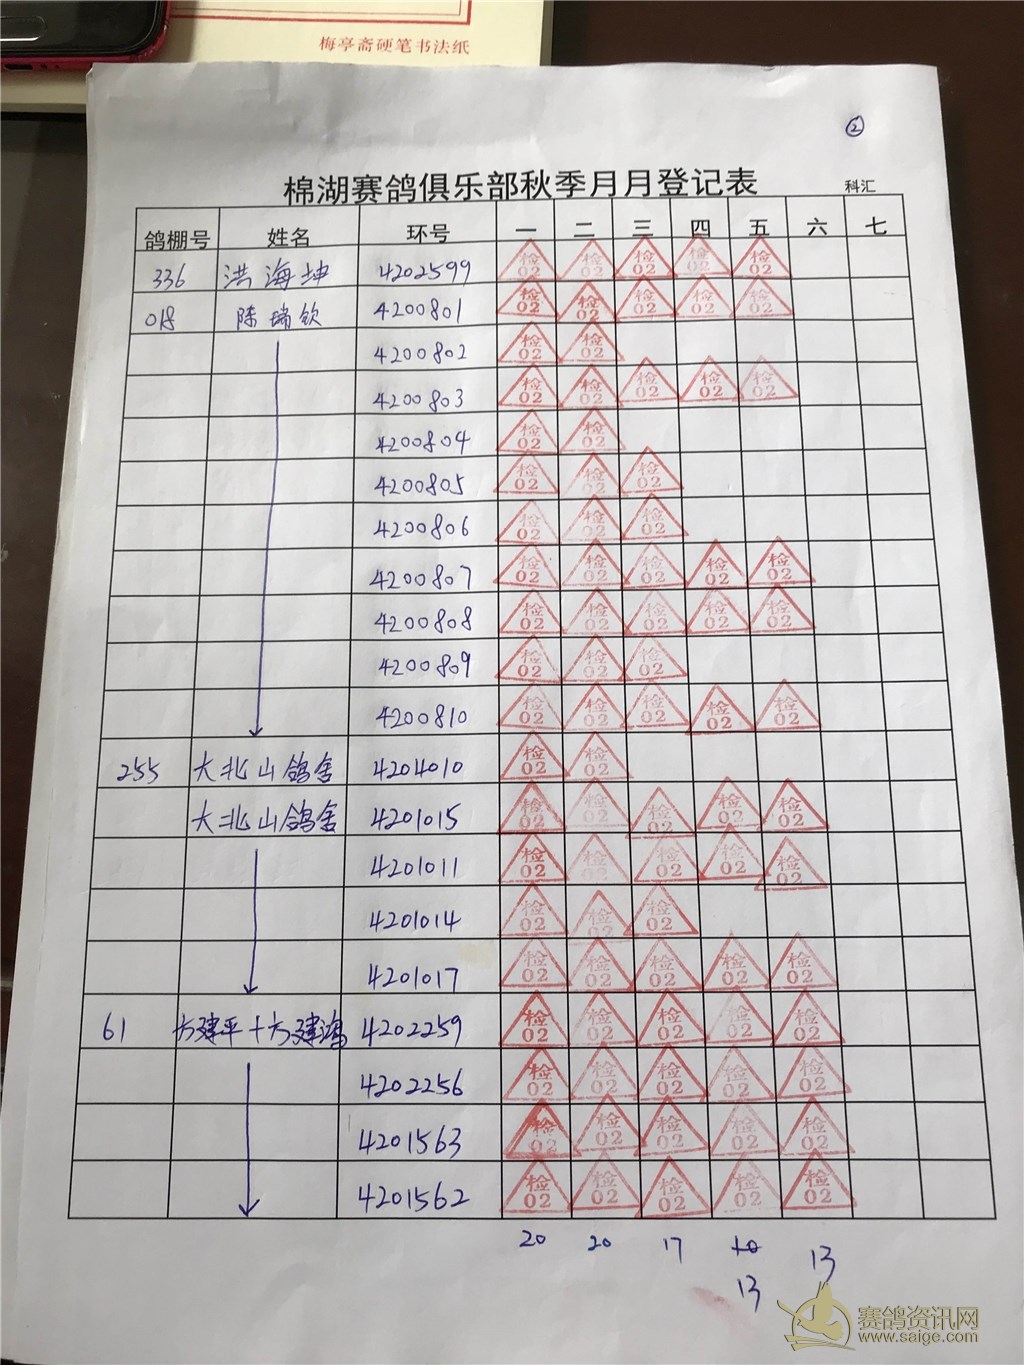 梅亭斋硬笔书法纸
②
棉湖赛鸽俱乐部秋季月月登记表 科汇
鸽棚号 姓名 环号 一 二 三 四 五 六 七
336 洪海坤 4202599 检02 检02 检02 检02 检02
018 陈瑞钦 4200801 检02 检02 检02 检02 检02
4200802 检02 检02
4200803 检02 检02 检02 检02 检02
4200804 检02 检02
4200805 检02 检02 检02
4200806 检02 检02 检02
4200807 检02 检02 检02 检02 检02
4200808 检02 检02 检02 检02 检02
4200809 检02 检02 检02
4200810 检02 检02 检02 检02 检02
255 大北山鸽舍 4204010 检02 检02
大北山鸽舍 4201015 检02 检02 检02 检02 检02
4201011 检02 检02 检02 检02 检02
4201014 检02 检02 检02
4201017 检02 检02 检02 检02 检02
61 方建平十方建鸿 4202259 检02 检02 检02 检02 检02
4202256 检02 检02 检02 检02 检02
4201563 检02 检02 检02 检02 检02
4201562 检02 检02 检02 检02 检02
20 20 17 13
13
赛鸽资讯网
www.saige.com